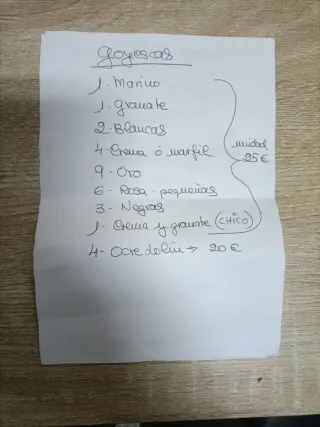 goyescas
1- Marino
1- granate
2- Blancas
4- Crema ó marfil
unidad
25 €
9- Oro
6- Rosa - pequeñas
3- Negras
1- Crema y granate (CHICO)
4- Ocre → 20 €